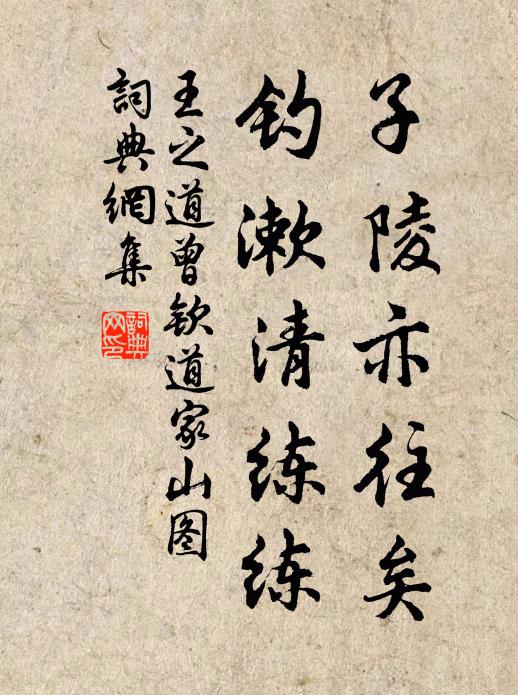 子陵亦往矣
钓漱清练练
王之道曾钦道家山图
詞典網集
詞典网印